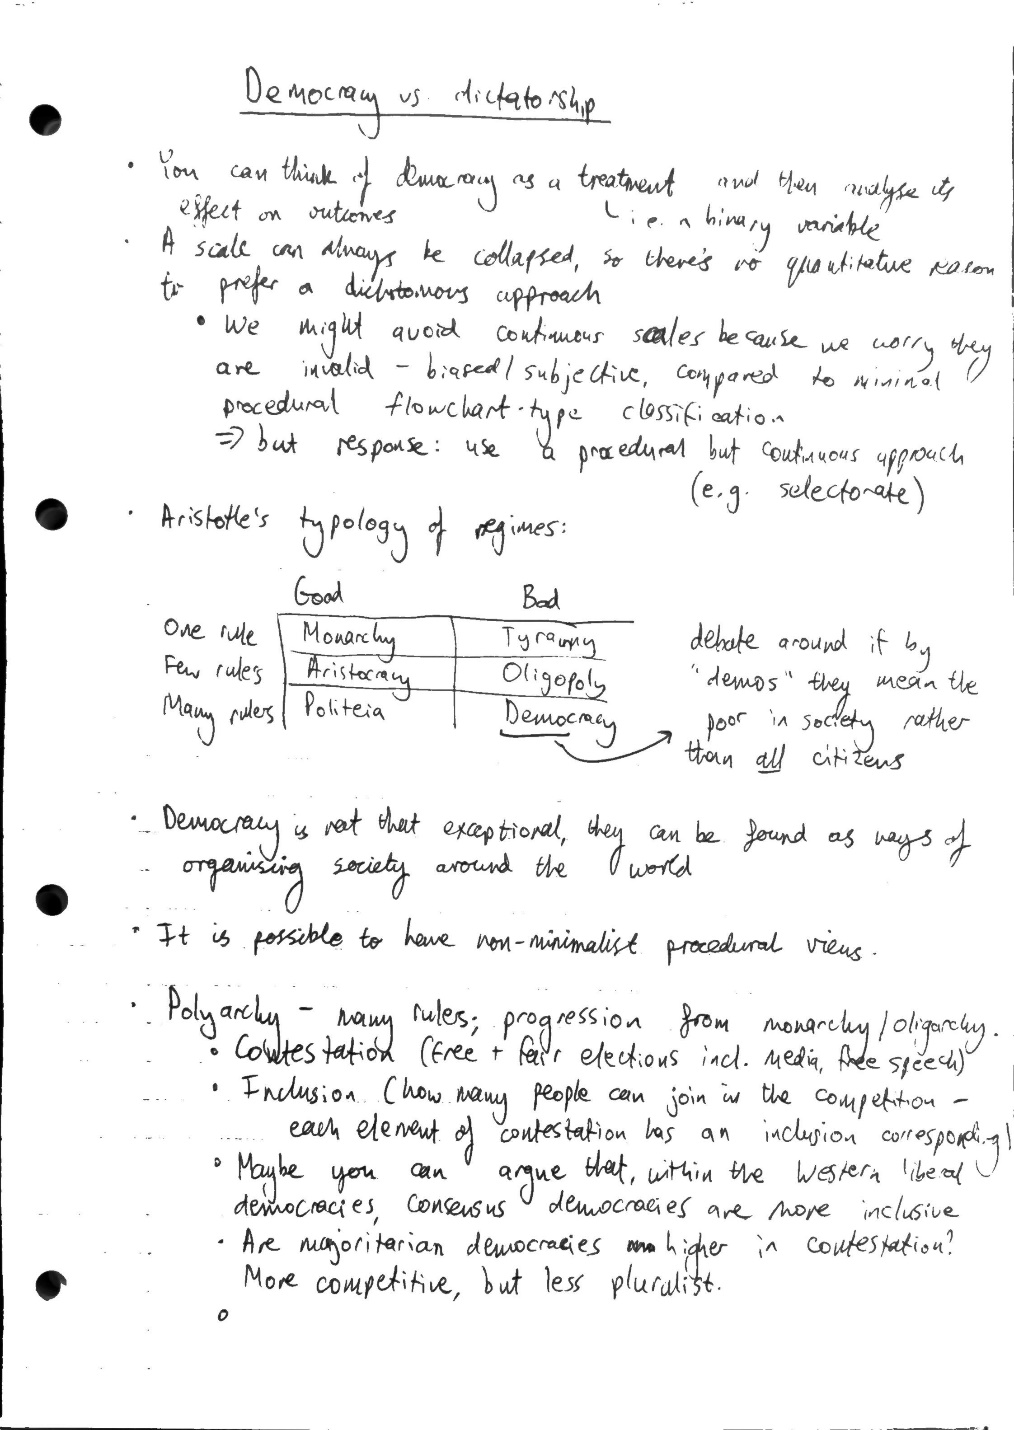 Democracy vs. dictatorship
• You can think of democracy as a treatment and then analyse its
effect on outcomes
↳ i.e. a binary variable
• A scale can always be collapsed, so there's no quantitative reason
to prefer a dichotomous approach
• We might avoid continuous scales because we worry they
are invalid – biased/subjective, compared to minimal
procedural flowchart-type classification
⇒ but response: use a procedural but continuous approach
(e.g. selectorate)
• Aristotle's typology of regimes:
Good Bad
One rule Monarchy Tyranny
Few rulers Aristocracy Oligopoly
Many rulers Politeia Democracy
debate around if by
"demos" they mean the
poor in society rather
than all citizens
• Democracy is not that exceptional, they can be found as ways of
organising society around the world
• It is possible to have non-minimalist procedural views.
• Polyarchy – many rulers; progression from monarchy/oligarchy.
• Contestation (free + fair elections incl. media, free speech)
• Inclusion (how many people can join in the competition –
each element of contestation has an inclusion corresponding)
• Maybe you can argue that, within the Western liberal
democracies, consensus democracies are more inclusive
• Are majoritarian democracies higher in contestation?
More competitive, but less pluralist.